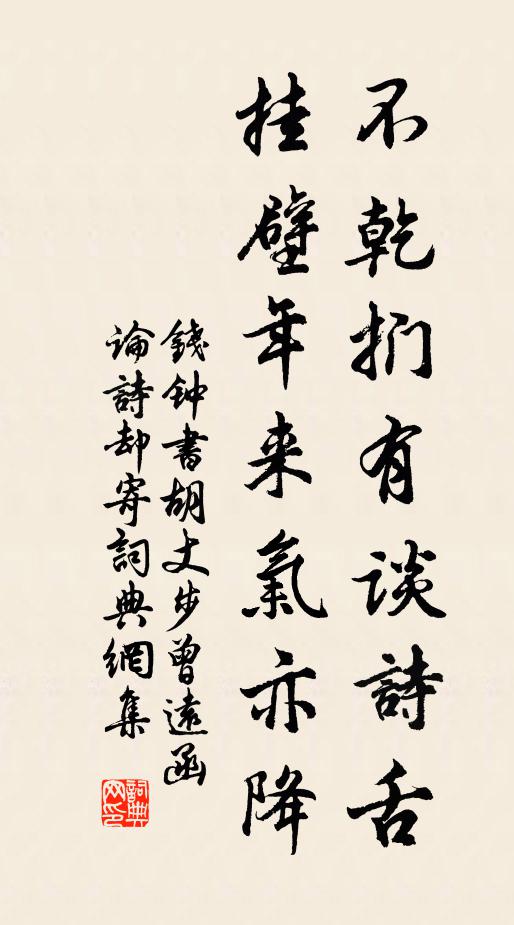 不乾捫有談詩舌
挂壁年来氣亦降
錢钟書胡丈步曾遠函
論詩却寄詞典網集
詞典
网印